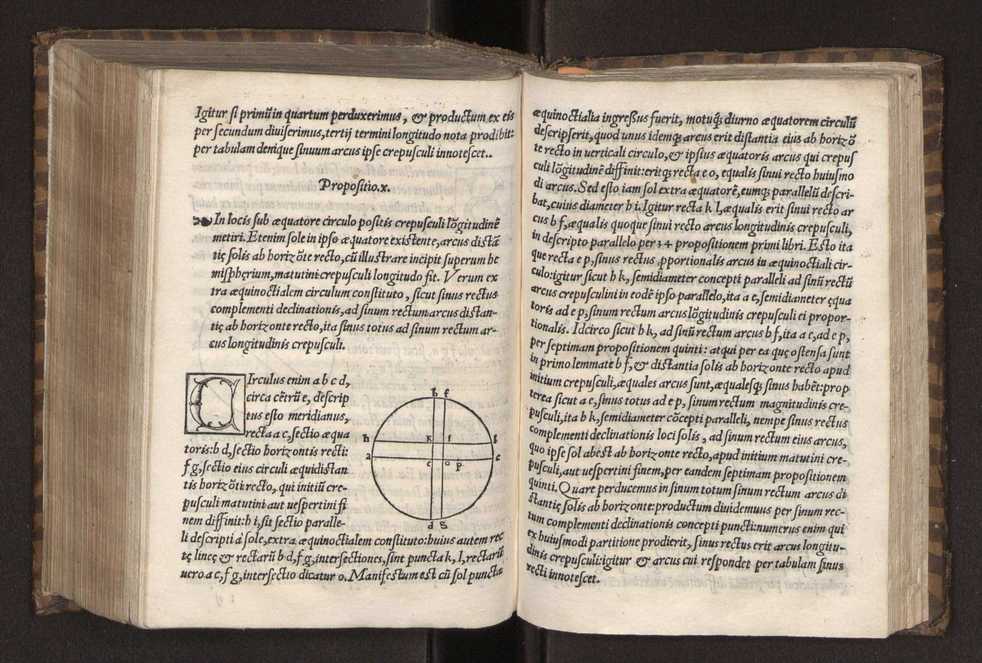 Igitur si primũ in quartum perduxerimus, & productum ex eis
per secundum diuiserimus, tertij termini longitudo nota prodibit:
per tabulam denique sinuum arcus ipse crepusculi innotescet..
Propositio.x.
In locis sub æquatore circulo positis crepusculi lõgitudinẽ
metiri. Etenim sole in ipso æquatore existente, arcus distã
tię solis ab horizõte recto, cũ illustrare incipit superum he
misphęrium, matutini crepusculi longitudo fit. Verum ex
tra æquinoctialem circulum constituto, sicut sinus rectus
complementi declinationis, ad sinum rectum arcus distan-
tię ab horizonte recto, ita sinus totus ad sinum rectum ar-
cus longitudinis crepusculi.
CIrculus enim a b c d,
circa cẽtrũ e, descrip
tus esto meridianus,
recta a c, sectio æqua
toris: b d, sectio horizontis recti:
f g, sectio eius circuli æquidistan
tis horizõti recto, qui initiũ cre-
pusculi matutini aut uespertini fi
nem diffinit: h i, sit sectio paralle-
li descripti à sole, extra æquinoctialem constituto: huius autem rec
tę lineę & rectarũ b d, f g, intersectiones, sint puncta k, l, rectarũ
uero a c, f g, intersectio dicatur o. Manifestum est cũ sol puncta
b f
h k l g
a e o p c
d g
æquinoctialia ingressus fuerit, motuq́; diurno æquatorem circulũ
descripserit, quod unus idemq́; arcus erit distantia eius ab horizõ
te recto in uerticali circulo, & ipsius æquatoris arcus qui crepus
culi lõgitudinẽ diffinit: eritq́; recta e o, equalis sinui recto huiusmo
di arcus. Sed esto iam sol extra æquatorẽ, eumq́; parallelũ descri-
bat, cuius diameter h i. Igitur recta k l, æqualis erit sinui recto ar
cus b f, æqualis quoque sinui recto arcus longitudinis crepusculi,
in descripto parallelo per 34 propositionem primi libri. Esto ita
que recta e p, sinus rectus ꝓportionalis arcus in æquinoctiali cir-
culo: igitur sicut h k, semidiameter concepti paralleli ad sinũ rectũ
arcus crepusculini in eodẽ ipso parallelo, ita a e, semidiameter ęqua
toris ad e p, sinum rectum arcus lõgitudinis crepusculi ei propor-
tionalis. Idcirco sicut h k, ad sinũ rectum arcus b f, ita a e, ad e p,
per septimam propositionem quinti: atqui per ea quę ostensa sunt
in primo lemmate b f, & distantia solis ab horizonte recto apud
initium crepusculi, æquales arcus sunt, æqualesq́; sinus habẽt: prop
terea sicut a e, sinus totus ad e p, sinum rectum magnitudinis cre-
pusculi, ita h k, semidiameter cõcepti paralleli, nempe sinus rectus
complementi declinationis loci solis, ad sinum rectum eius arcus,
quo ipse sol abest ab horizonte recto, apud initium matutini cre-
pusculi, aut uespertini finem, per eandem septimam propositionem
quinti. Quare perducemus in sinum totum sinum rectum arcus di
stantię solis ab horizonte: productum diuidemus per sinum rec-
tum complementi declinationis concepti puncti: numerus enim qui
ex huiusmodi partitione prodierit, sinus rectus erit arcus longitu-
dinis crepusculi: igitur & arcus cui respondet per tabulam sinus
recti innotescet.